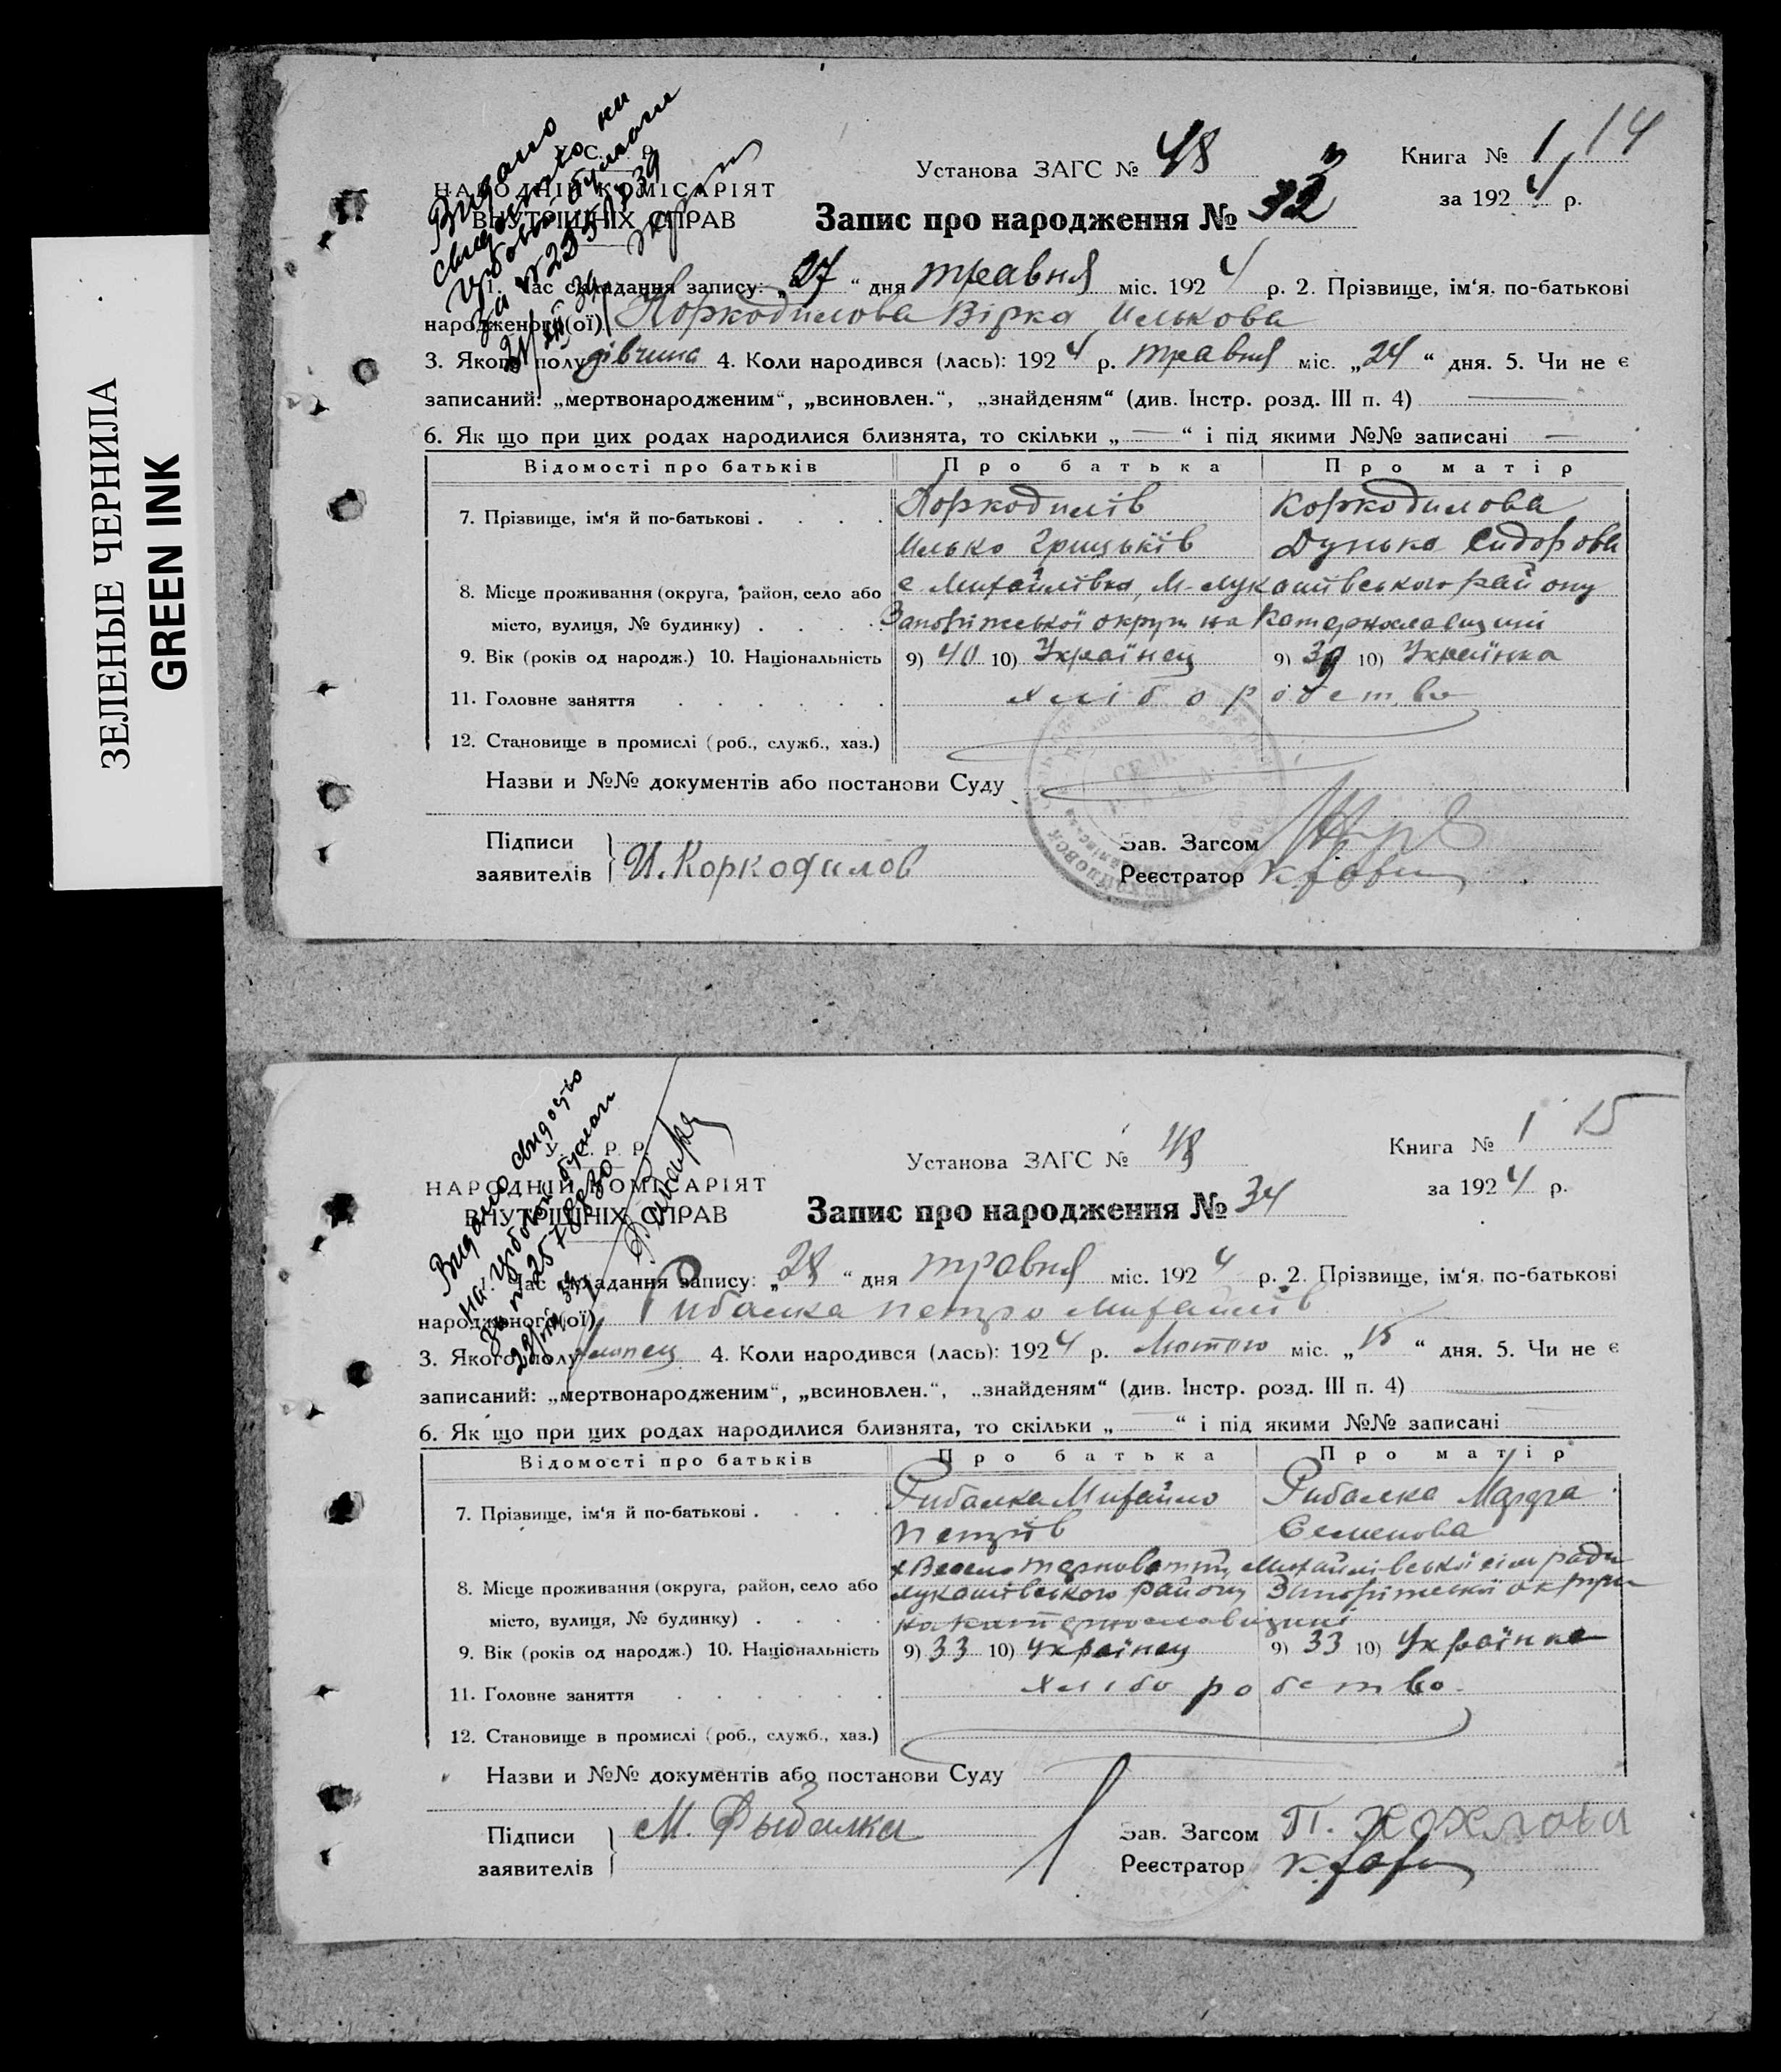 ЗЕЛЕНЫЕ ЧЕРНИЛА
GREEN INK
Видано
свидоцтво на
гербовий бумаги
Установа ЗАГС № 48
Книга № 1 14
НАРОДНІЙ КОМІСАРІЯТ
ВНУТРІШНІХ СПРАВ
за 1924 р.
Запис про народження № 32 3
1. Час складання запису: „27“ дня травня міс. 1924 р. 2. Прізвище, ім‘я, по-батькові
народженого(ої) Коркодилова Вірка Илькова
3. Якого полу дівчина 4. Коли народився (лась): 1924 р. травня міс. „24“ дня. 5. Чи не є
записаний: „мертвонародженим“, „всиновлен.“, „знайденям“ (див. Інстр. розд. III п. 4)
6. Як що при цих родах народилися близнята, то скільки „—“ і під якими №№ записані —
Відомості про батьків Про батька Про матір
7. Прізвище, ім‘я й по-батькові . . . . Коркодилів Коркодилова
Илько Грицьків Дунька Сидорова
8. Місце проживання (округа, район, село або с. Михайлівка, М-Лукашівського району
місто, вулиця, № будинку) . . . . Запоріжської округи на Катеринославщині
9. Вік (років од народж.) 10. Національність 9) 40 10) Українец 9) 39 10) Українка
11. Головне заняття . . . . . . хліборобство
12. Становище в промислі (роб., служб., хаз.)
Назви и №№ документів або постанови Суду
Підписи
заявителів И. Коркодилов
Зав. Загсом
Реєстратор
Видано свидоцтво
на гербовій бумаги
У. С. Р. Р.
Установа ЗАГС № 48
Книга № 1 15
НАРОДНІЙ КОМІСАРІЯТ
ВНУТРІШНІХ СПРАВ
за 1924 р.
Запис про народження № 34
1. Час складання запису: „28“ дня травня міс. 1924 р. 2. Прізвище, ім‘я, по-батькові
народженого(ої) Рибалка Петро Михайлів
3. Якого полу хлопец 4. Коли народився (лась): 1924 р. Лютого міс. „15“ дня. 5. Чи не є
записаний: „мертвонародженим“, „всиновлен.“, „знайденям“ (див. Інстр. розд. III п. 4)
6. Як що при цих родах народилися близнята, то скільки „—“ і під якими №№ записані
Відомості про батьків Про батька Про матір
7. Прізвище, ім‘я й по-батькові . . . . Рибалка Михайло Рибалка Марфа
Петрів Семенова
х Весело Терноватий, Михайлівської сільради
8. Місце проживання (округа, район, село або Лукашівського району Запоріжської округи
місто, вулиця, № будинку) . . . . на Катеринославщині
9. Вік (років од народж.) 10. Національність 9) 33 10) Українец 9) 33 10) Українка
11. Головне заняття . . . . . . хліборобство
12. Становище в промислі (роб., служб., хаз.)
Назви и №№ документів або постанови Суду
Підписи М. Рыбалка
заявителів
Зав. Загсом П. Хохлова
Реєстратор